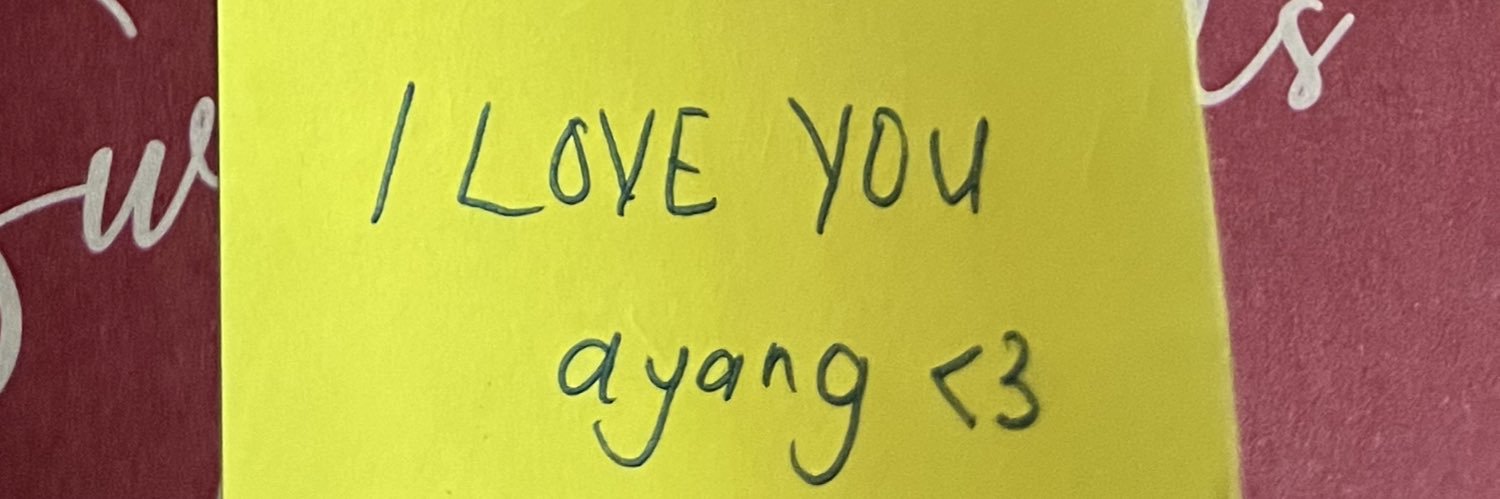 I LOVE YOU
ayang <3